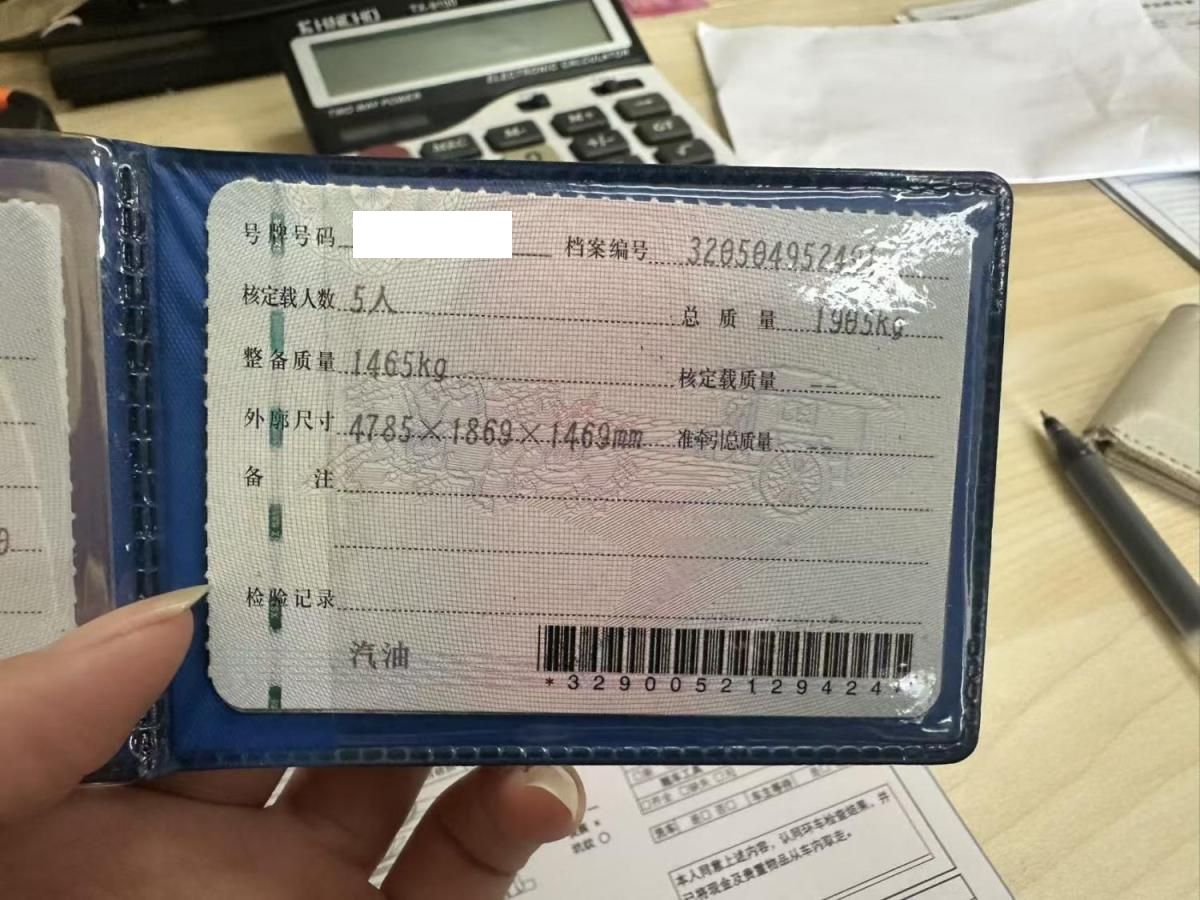 TWO WAY POWER
ELECTRONIC CALCULATOR
MRC M- M+
+/- GT
√
号牌号码 档案编号
核定载人数 5人 总质量 1905kg
整备质量 1465kg 核定载质量 --
外廓尺寸 4785×1869×1469mm 准牵引总质量 --
备注
检验记录
汽油
*3290052129424
随车工具
齐全 缺失 无
洗车 是 否 车主等待 是
本人同意上述内容，认同环车检查结果，并
已将现金及贵重物品从车内取走。